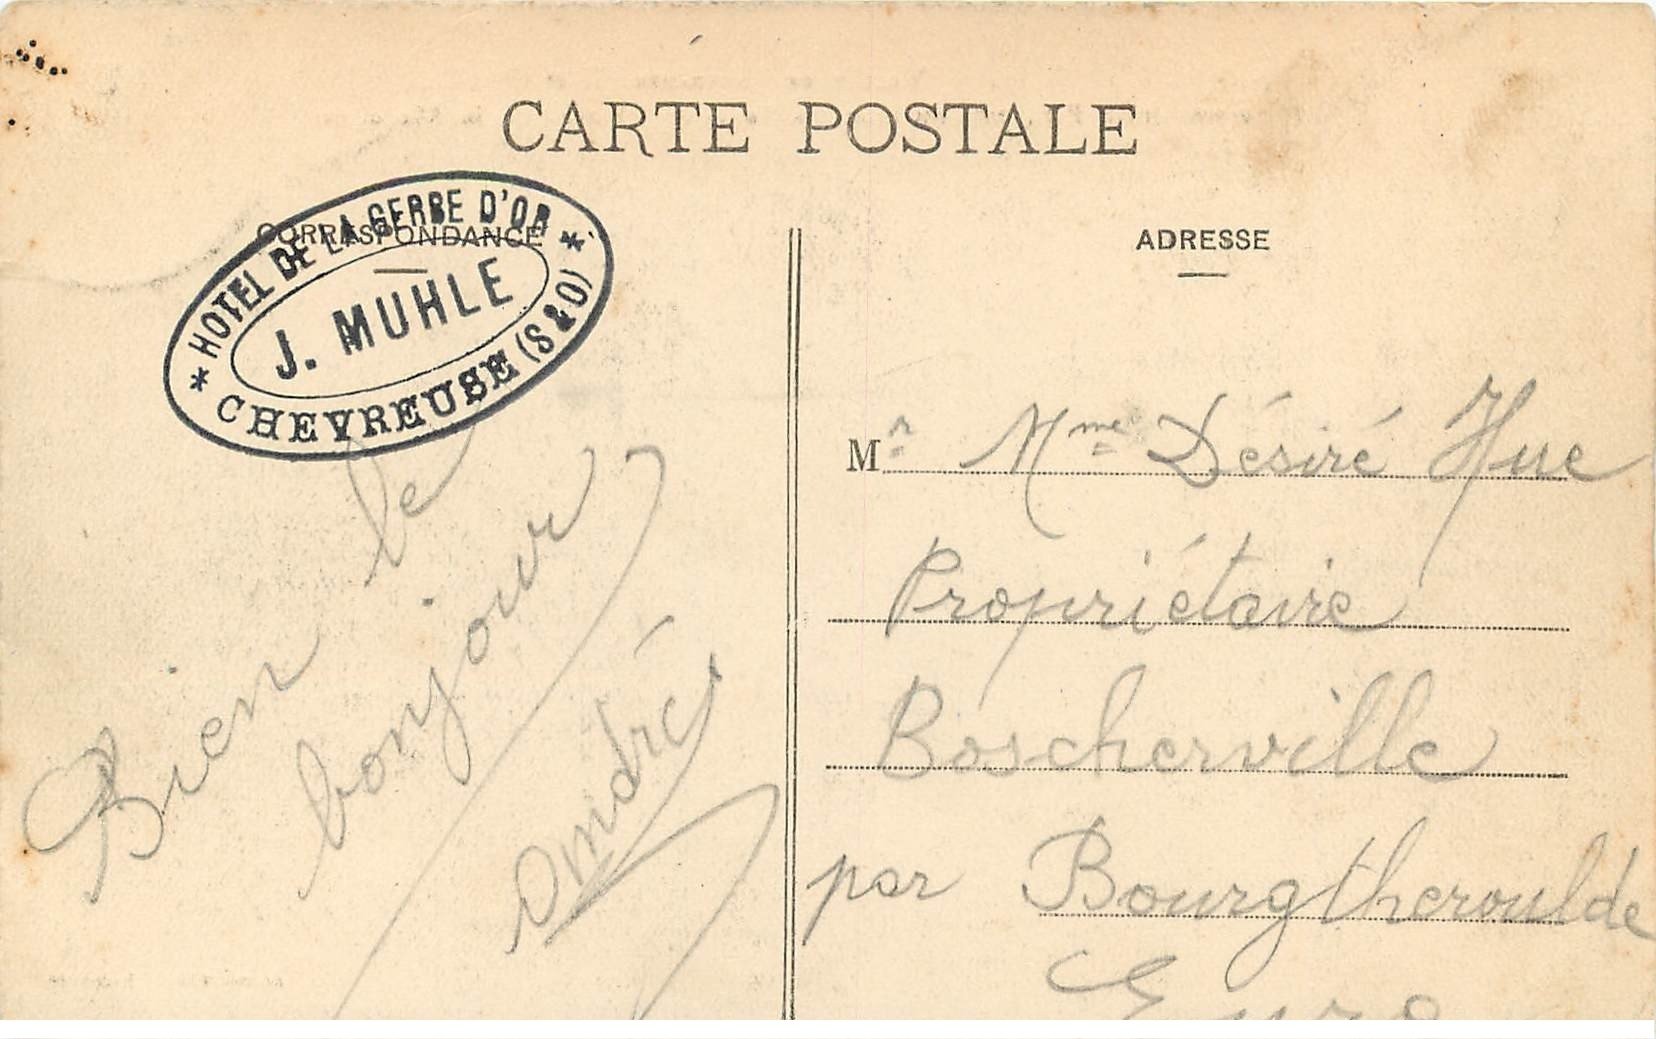 CARTE POSTALE
CORRESPONDANCE
HOTEL DE LA GERBE D'OR
J. MUHLE
CHEVREUSE (S & O)
Bien le
bonjour
André
ADRESSE
Mr Mme Désiré Hue
Propriétaire
Boscherville
par Bourgtheroulde
Eure